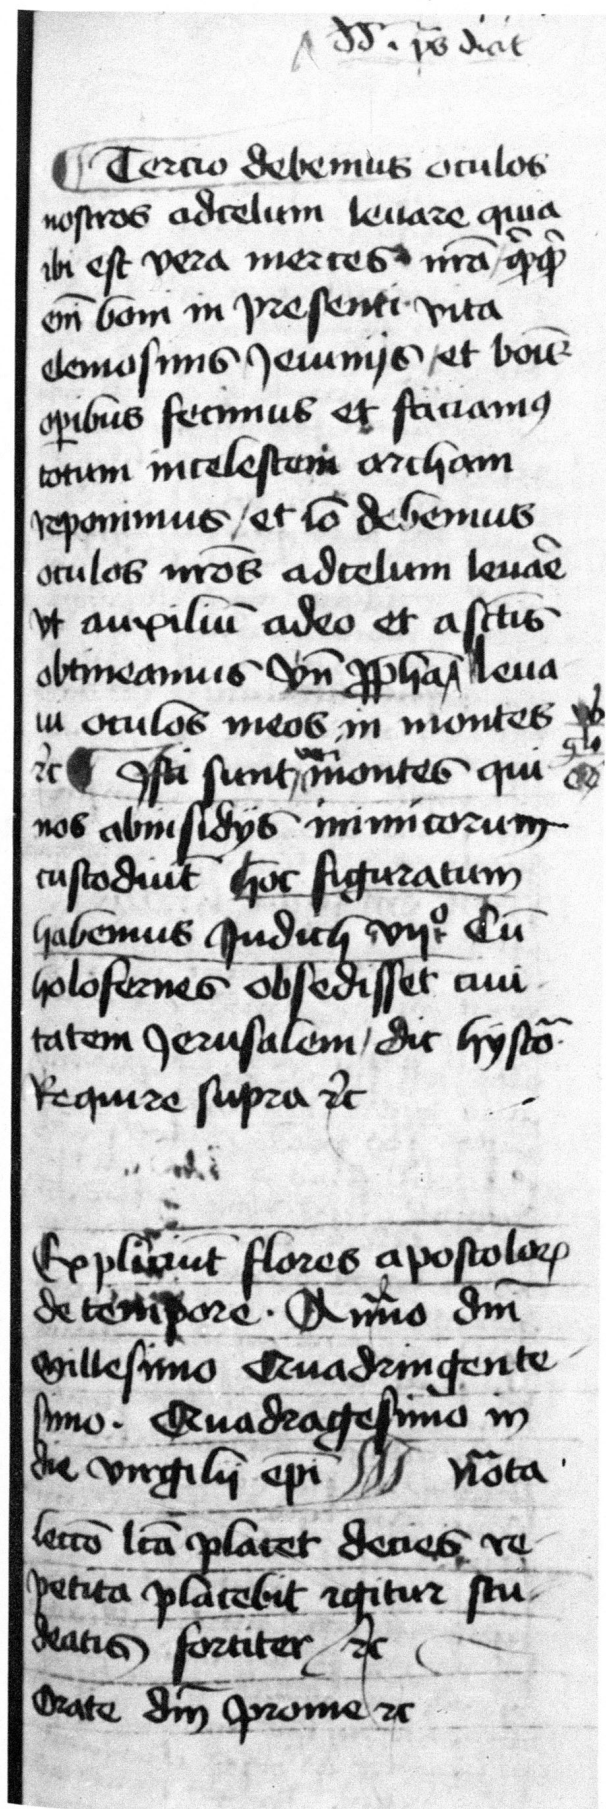 ps dicit
Tercio debemus oculos
nostros adcelum leuare quia
ibi est vera merces nrā quicquid
em̄ boni in presenti vita
elemosinis Jeiunijs / et bonis
operibus fecimus et faciamus
totum incelestem archam
reponimus / et iō debemus
oculos nrōs adcelum leuare
vt auxiliū adeo et asctīs
obtineamus Vn̄ pphā leua
ui oculos meos in montes
rc Isti sunt montes qui
nos abinsidijs inimicorum
custodiūt hoc figuratum
habemus Judich vijᵒ Cū
holofernes obsedisset ciui
tatem Jerusalem / dic hystō
Require supra rc
Expliciūt flores apostolorum
de tempore. Anno dm̄
Millesimo Quadringente
simo. Quadragesimo in
die virgilij epī Nota
leccō lcā placet decies re
petita placebit igitur stu
deatis fortiter rc
Orate dm̄ prome rc